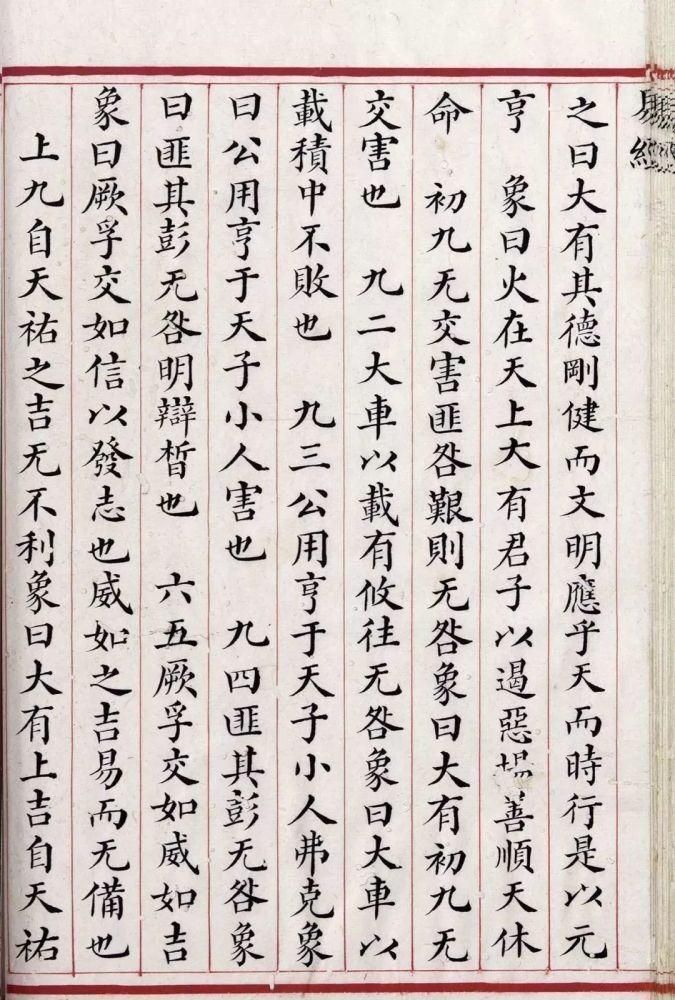 之曰大有其德剛健而文明應乎天而時行是以元
亨　象曰火在天上大有君子以遏惡揚善順天休
命　初九无交害匪咎艱則无咎象曰大有初九无
交害也　九二大車以載有攸往无咎象曰大車以
載積中不敗也　九三公用亨于天子小人弗克象
曰公用亨于天子小人害也　九四匪其彭无咎象
曰匪其彭无咎明辯晳也　六五厥孚交如威如吉
象曰厥孚交如信以發志也威如之吉易而无備也
上九自天祐之吉无不利象曰大有上吉自天祐